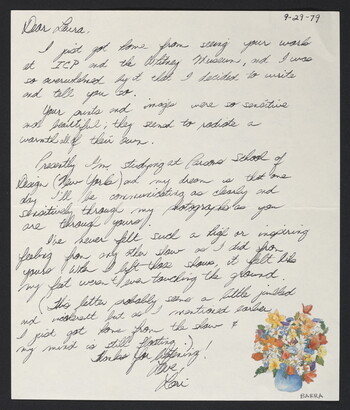 9-29-79
Dear Laura,
I just got home from seeing your work
at ICP and the Whitney Museum, and I was
so overwhelmed by it that I decided to write
and tell you so.
Your prints and images were so sensitive
and beautiful; they seemed to radiate a
warmth all of their own.
Presently I'm studying at Parsons School of
Design (New York) and my dream is that one
day I'll be communicating as clearly and
sensitively through my photographs as you
are through yours.
I've never felt such a high or inspiring
feeling from any other show as I did from
yours. When I left those shows, it felt like
my feet weren't even touching the ground.
(This letter probably seems a little jumbled
and incoherent but as I mentioned earlier
I just got home from the show &
my mind is still floating.)
Thanks for listening!
Love,
Lori
BARRA